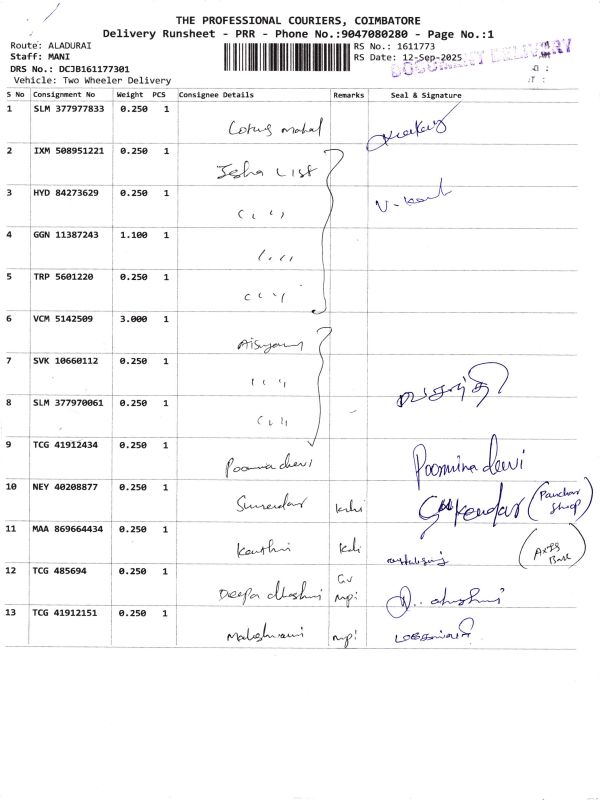 THE PROFESSIONAL COURIERS, COIMBATORE
Delivery Runsheet - PRR - Phone No.:9047080280 - Page No.:1
Route: ALADURAI
Staff: MANI
DRS No.: DCJB161177301
Vehicle: Two Wheeler Delivery
RS No.: 1611773
RS Date: 12-Sep-2025
DOCUMENT DELIVERY
S No Consignment No Weight PCS Consignee Details Remarks Seal & Signature
1 SLM 377977833 0.250 1
Lotus mahal
2 IXM 508951221 0.250 1
Isha List
3 HYD 84273629 0.250 1
4 GGN 11387243 1.100 1
5 TRP 5601220 0.250 1
6 VCM 5142509 3.000 1
7 SVK 10660112 0.250 1
8 SLM 377970061 0.250 1
9 TCG 41912434 0.250 1
Poornima devi Poornima devi
10 NEY 40208877 0.250 1
(Panchar Shop)
11 MAA 869664434 0.250 1
(Axis Bank)
12 TCG 485694 0.250 1
Deepa dharshini mpi
13 TCG 41912151 0.250 1
Maheshwari mpi